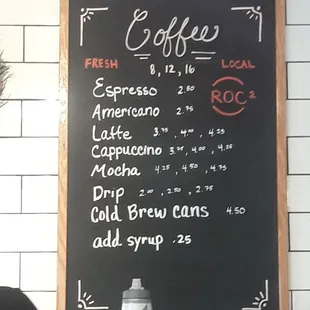 Coffee
FRESH LOCAL
8, 12, 16
ROC²
Espresso 2.50
Americano 2.75
Latte 3.75, 4.00, 4.25
Cappuccino 3.75, 4.00, 4.25
Mocha 4.25, 4.50, 4.75
Drip 2.00, 2.50, 2.75
Cold Brew Cans 4.50
add syrup .25